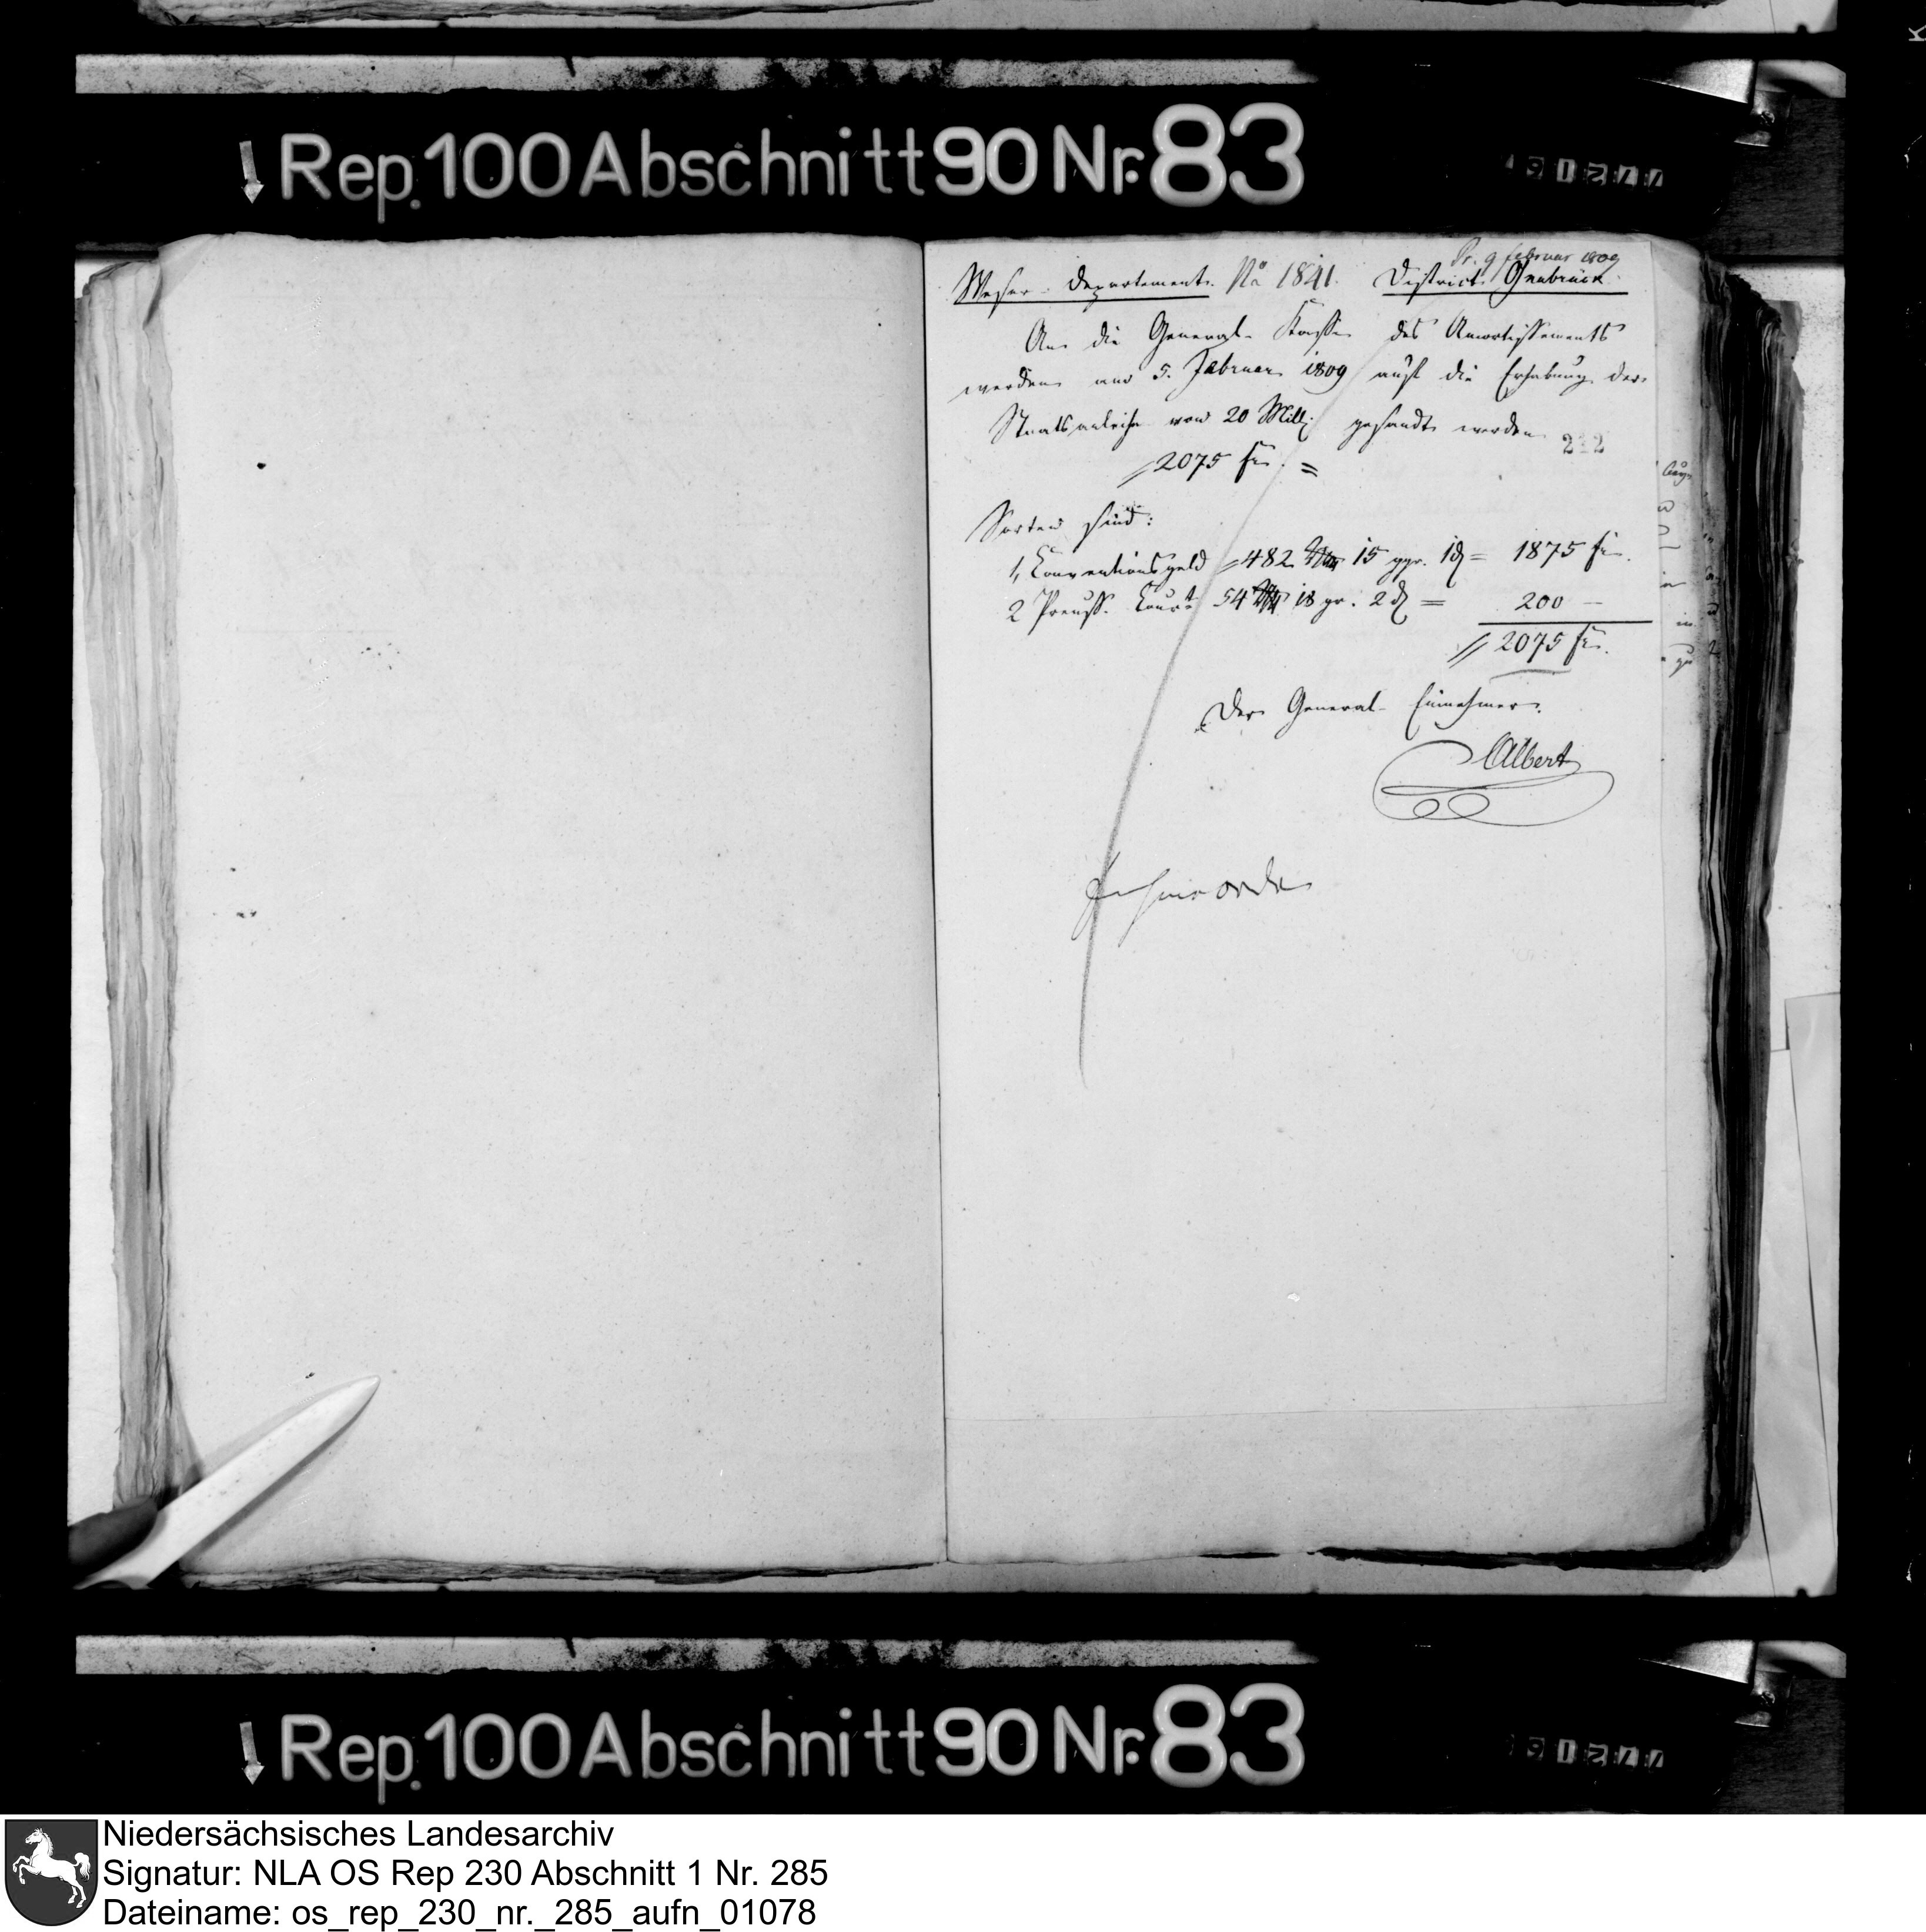 Rep. 100 Abschnitt 90 Nr. 83
Pr. 9 februar 1809
Weser-Departement. No 1841. District Osnabrück
An die General-Kasse des Amortissements
werden am 5. Februar 1809 auf die Erhebung der
Staatsanleihe von 20 Mill. gesandt werden
242
2075 frs. =
Sorten sind:
1, Conventionsgeld 482 15 ggr. 1 d = 1875 frs.
2 Preuss. Court 54 18 gr. 2 d = 200 —
2075 frs.
Der General-Einnehmer.
Albert
Rep. 100 Abschnitt 90 Nr. 83
Niedersächsisches Landesarchiv
Signatur: NLA OS Rep 230 Abschnitt 1 Nr. 285
Dateiname: os_rep_230_nr._285_aufn_01078